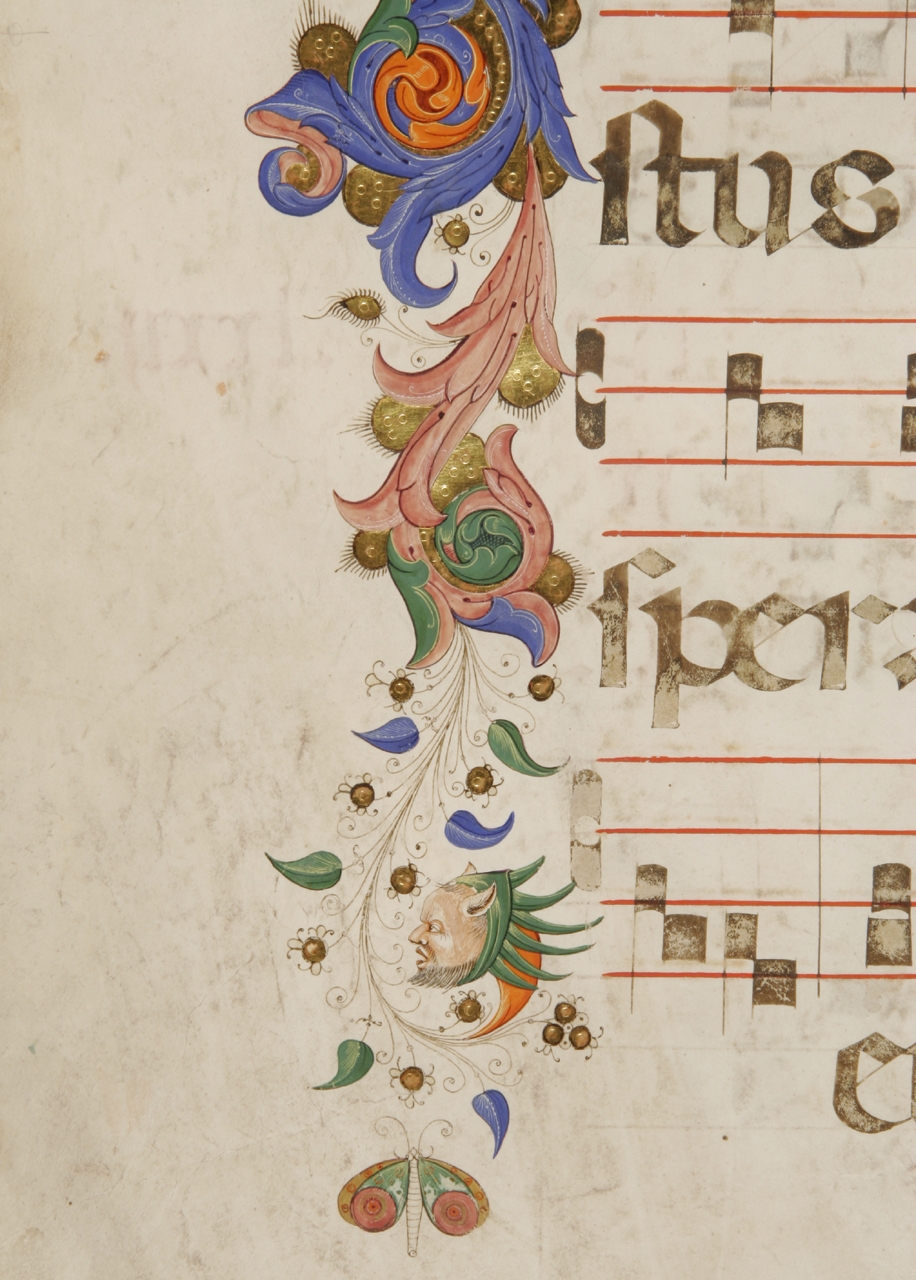 ſtus
ſper